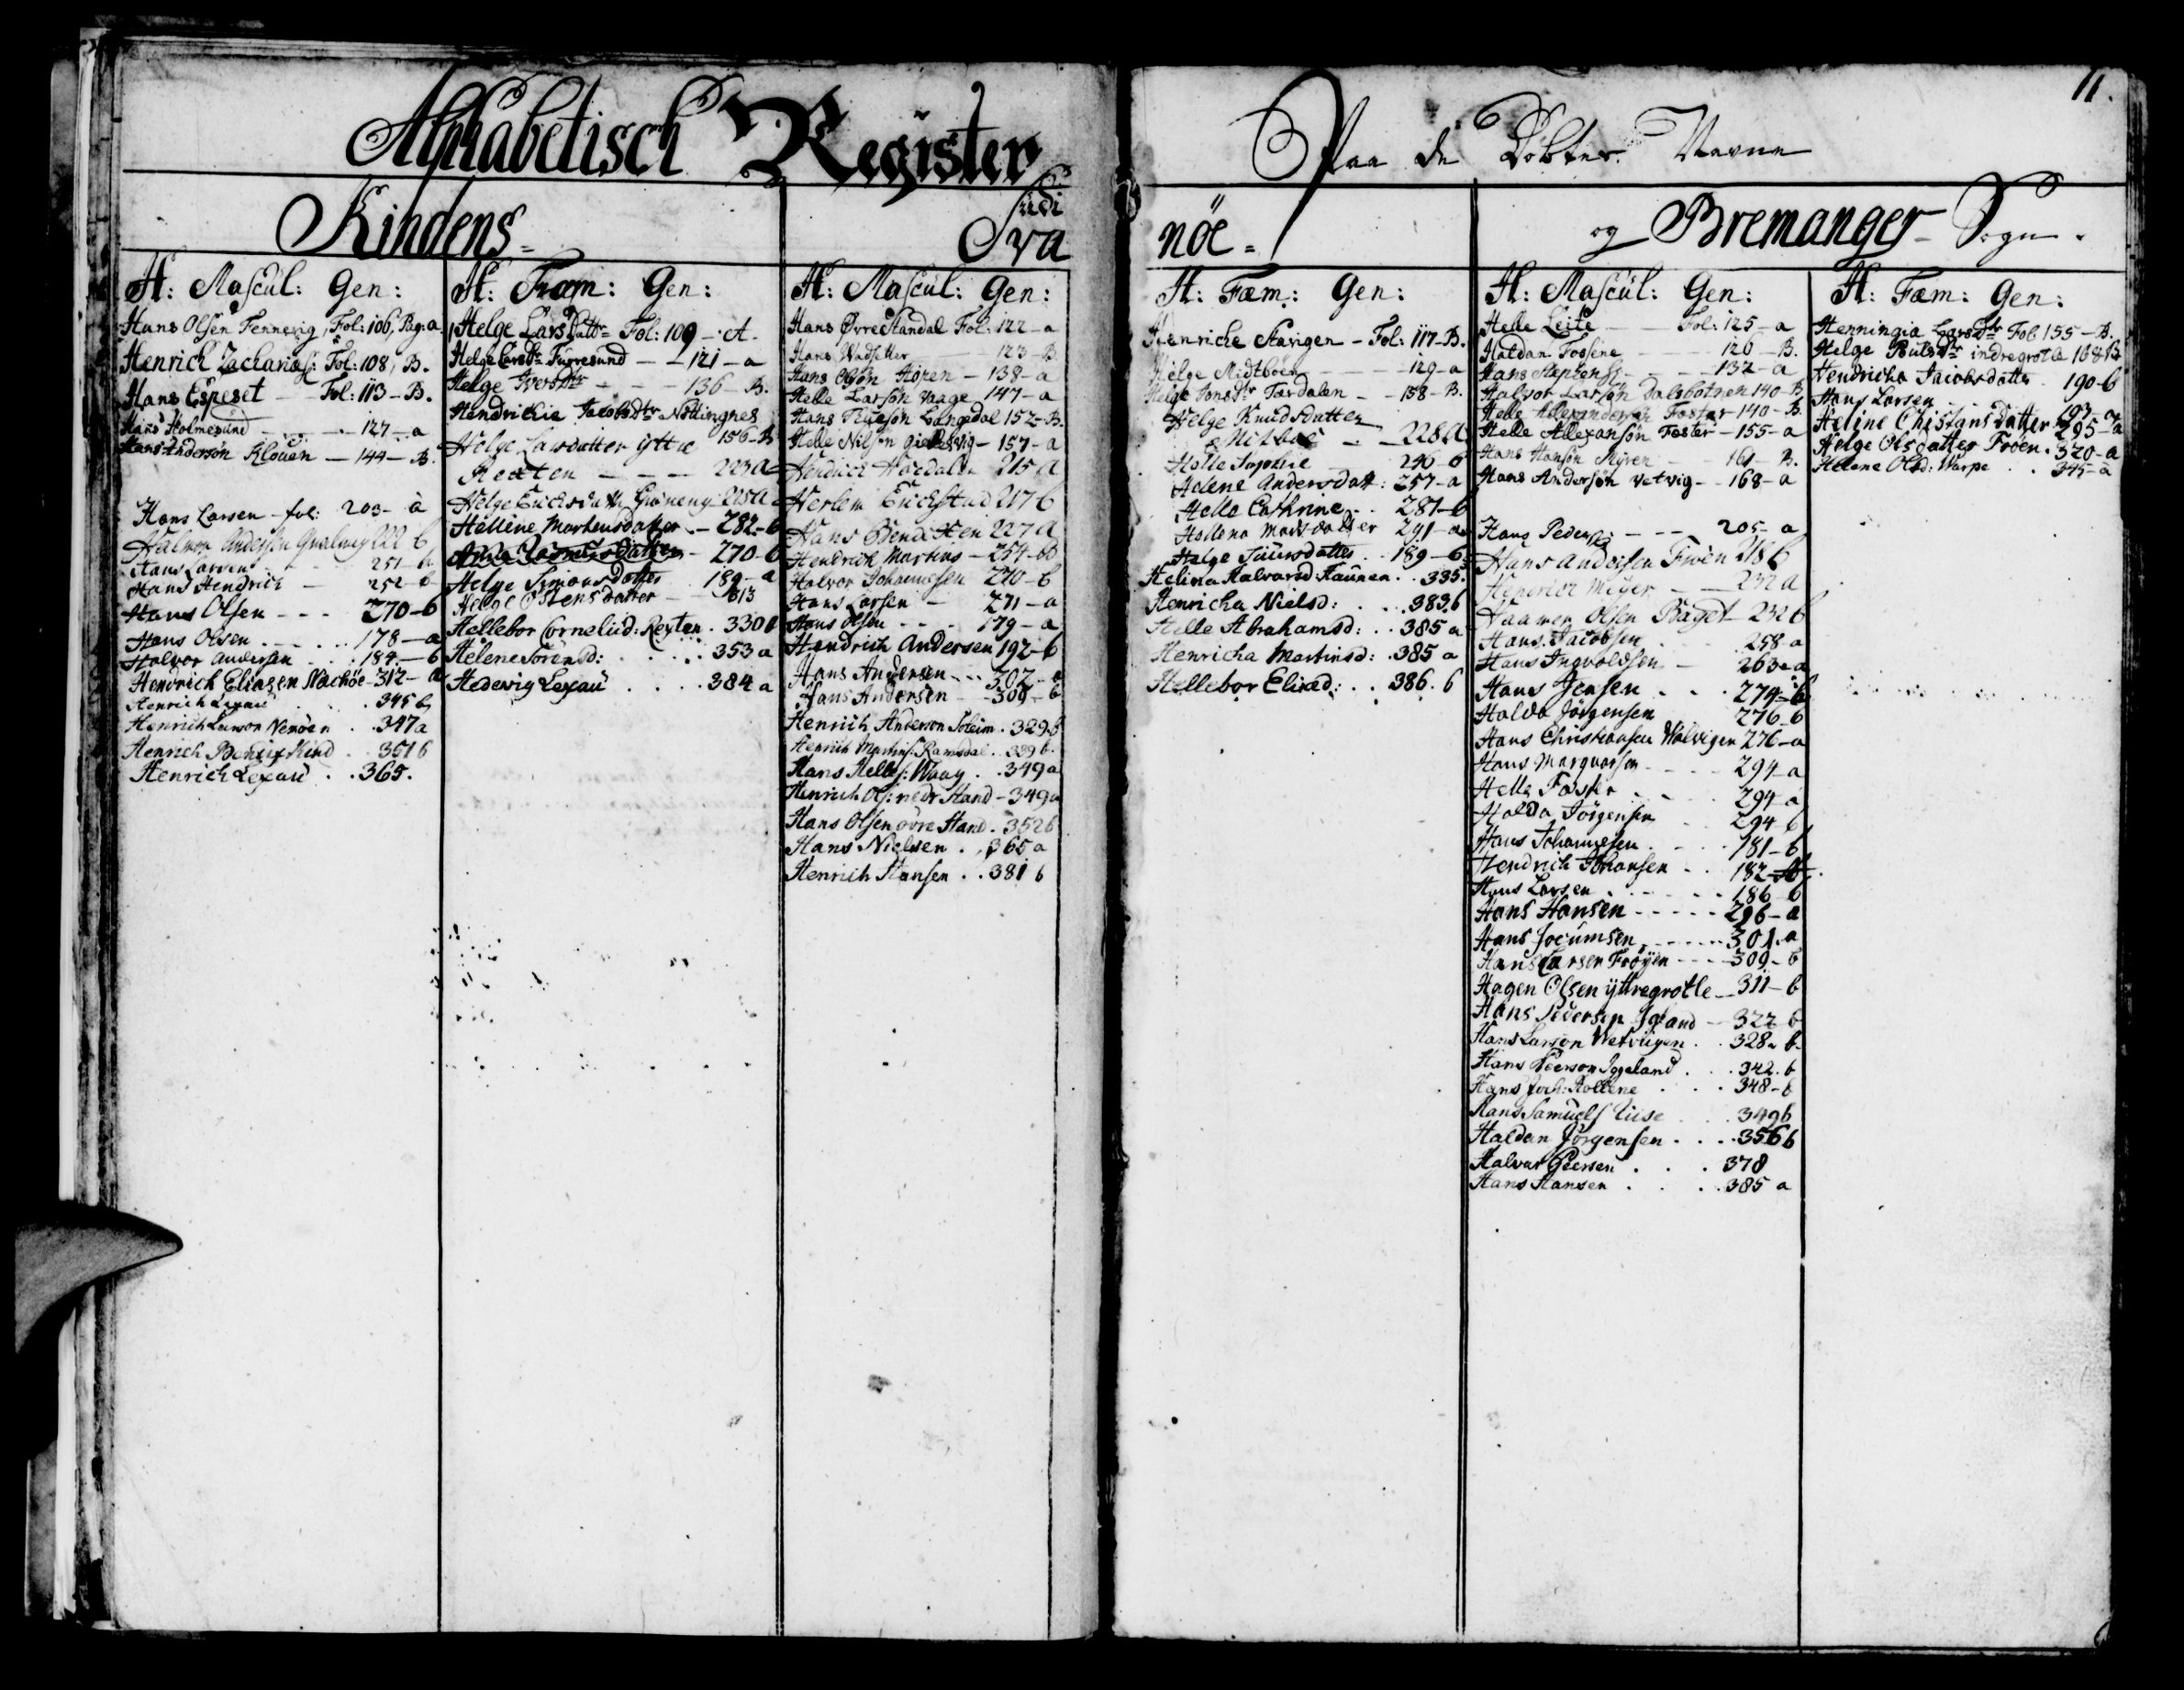 Alphabetisch Register
Kindens
Sudi
Sva
H: Mascül: Gen:
Hans Olsen Fennevig, Fol: 106, Pag: a
Henrich Zacharias: Fol: 108, B.
Hans Espeset Fol: 113 - B.
Hans Holmesund - 127 - a
Hans Anderson Klouen - 144 - B.
Hans Larsen - fol: 203 - a
Halvor Andersen 222 b
Hans Larsens 251 - b
Hans Hendrich - 252 - b
Hans Olsen - - - 270 - b
Hans Olsen 178 - a
Halvor Andersen 184 - b
Hendrich Eliasen Nachöe - 312 - a
Henrich Lexau 345 b
Henrich Larson Nemöen 347 a
Henrich Kind 351 b
Henrich Lexau . . 365.
H: Fœm: Gen:
Helge Lars Datter Fol: 109 - A.
Helge Larsdr Furresund - 121 - a
Helge Iversdtr - - - 136 - B.
Hendrichie Jacobsdtr Nottingnes
156 - B
Helge Larsdatter ytter
Rexten - - - 223 a
Helge Erichsdatter 225 a
Helline Martensdatter - 282 - b
270 - b
Helge Simonsdatter 189 - a
Helge Ostensdatter 313
Hellebor Cornelüd: Rexten . 330 b
Helene Sörensd: 353 a
Hedewig Lexau . . . 384 a
H: Mascül: Gen:
Hans Øvre Standal Fol: 122 - a
Hans Wadsetter 123 - B.
Hans Olsøn Høyen - 138 - a
Helle Larsøn Vaage 147 - a
Hans Langedal 152 - B.
Helle Nilsøn - 157 - a
Hendrich Hordalen 215 a
Herlem Erichstad 217 b
Hans Bendixen 227 a
Hendrich Martens - 257 - b
Halvor Johannessen 270 - b
Hans Larsen - 271 - a
Hans Olsen - - 179 - a
Hendrich Andersen 192 - b
Hans Andersen - - - 302 - a
Hans Andersen - 309 - b
Henrich Anderson Soleim . 329 b
Henrich Martins: Ramsdal . 339 b.
Hans Helles: Waag . . 349 a
Henrich Ols: nedr Stand - 349 a
Hans Olsen övre Stand . 352 b
Hans Nielsen . . 365 a
Henrich Hansen . . 381 b
11.
Paa de Döbtes Navne
nöe.
og Bremanger Sogn.
H: Fœm: Gen:
Henriche Stangen - Fol: 117 - B.
Helge Midtböen - - - 129 - a
Helge Jonsdtr Førdalen - - 158 - B.
Helge Knudsdatter
228 a
Helle Sophie 246 - b
Helene Andersdatt: 257 - a
Helle Cathrine - . 281 - b
Hellena Madsdatter 291 - a
Helge . . 189 - b
Helena Halvarsd: Haunen . . 335.
Henricha Nielsd: . . . 383 b
Helle Abrahamsd: . . 385 a
Henricha Martinsd: . 385 a
Hellebor Eliasd: . . 386. b
H: Mascül: Gen:
Helle Leite Fol: 125 - a
Haldan Fossene 126 - B.
Hans Stephens: - 132 - a
Halvor Larsøn Dalsbotnen 140 - B.
Helle Allexandersøn Foster 140 - B.
Helle Allexansøn Foster - 155 - a
Hans Hansøn Myren - 161 - B.
Hans Andersøn Vetvig - - 168 - a
Hans Peders: - - - 205 - a
Hans Andersen Frøen 218 b
Henrich Meyer - - 232 a
Haamen Olsen 232 b
Hans Jacobsen 258 - a
Hans Ingvoldsen - 263 - a
Hans Jensen . . . 274 - b
Halda Jörgensen 276 - b
Hans Christiansen Walvigen 276 - a
Hans Marquarsen . . . 294 - a
Helle Foster . . . 294 - a
Halda Jörgensen 294 - b
Hans Johannesen . . . 181 - b
Hendrich Johansen . . 182 -
Hans Larsen . . . 186 - b
Hans Hansen . . . 296 - a
Hans Jocumsen . . . 301 - a
Hans Larsen Fröyen . . . 309 - b
Hagen Olsen yttregrotle - 311 - b
Hans Pedersen Igland - 322 - b
Hans Larson Wetviigen . . 328 - b.
Hans Peerson Iggeland . . 342 . b
Hans Joch: . . 348 - b
Hans Samuels: Tiise . . 349 b
Haldan Jörgensen . . . 356 b
Halvar Peersen . . . 378
Hans Hansen . . . 385 a
H: Fœm: Gen:
Henningia Larsdtr Fol 155 - B.
Helge indregrotle 168 B
Hendricha Jacobsdatter 190 - b
Hans Larsen . . 193 - a
Heline Chistansdatter 295 - a
Helge Olsdatter Fröen . 320 - a
Helene Olsd: Warpe . . 345 - a